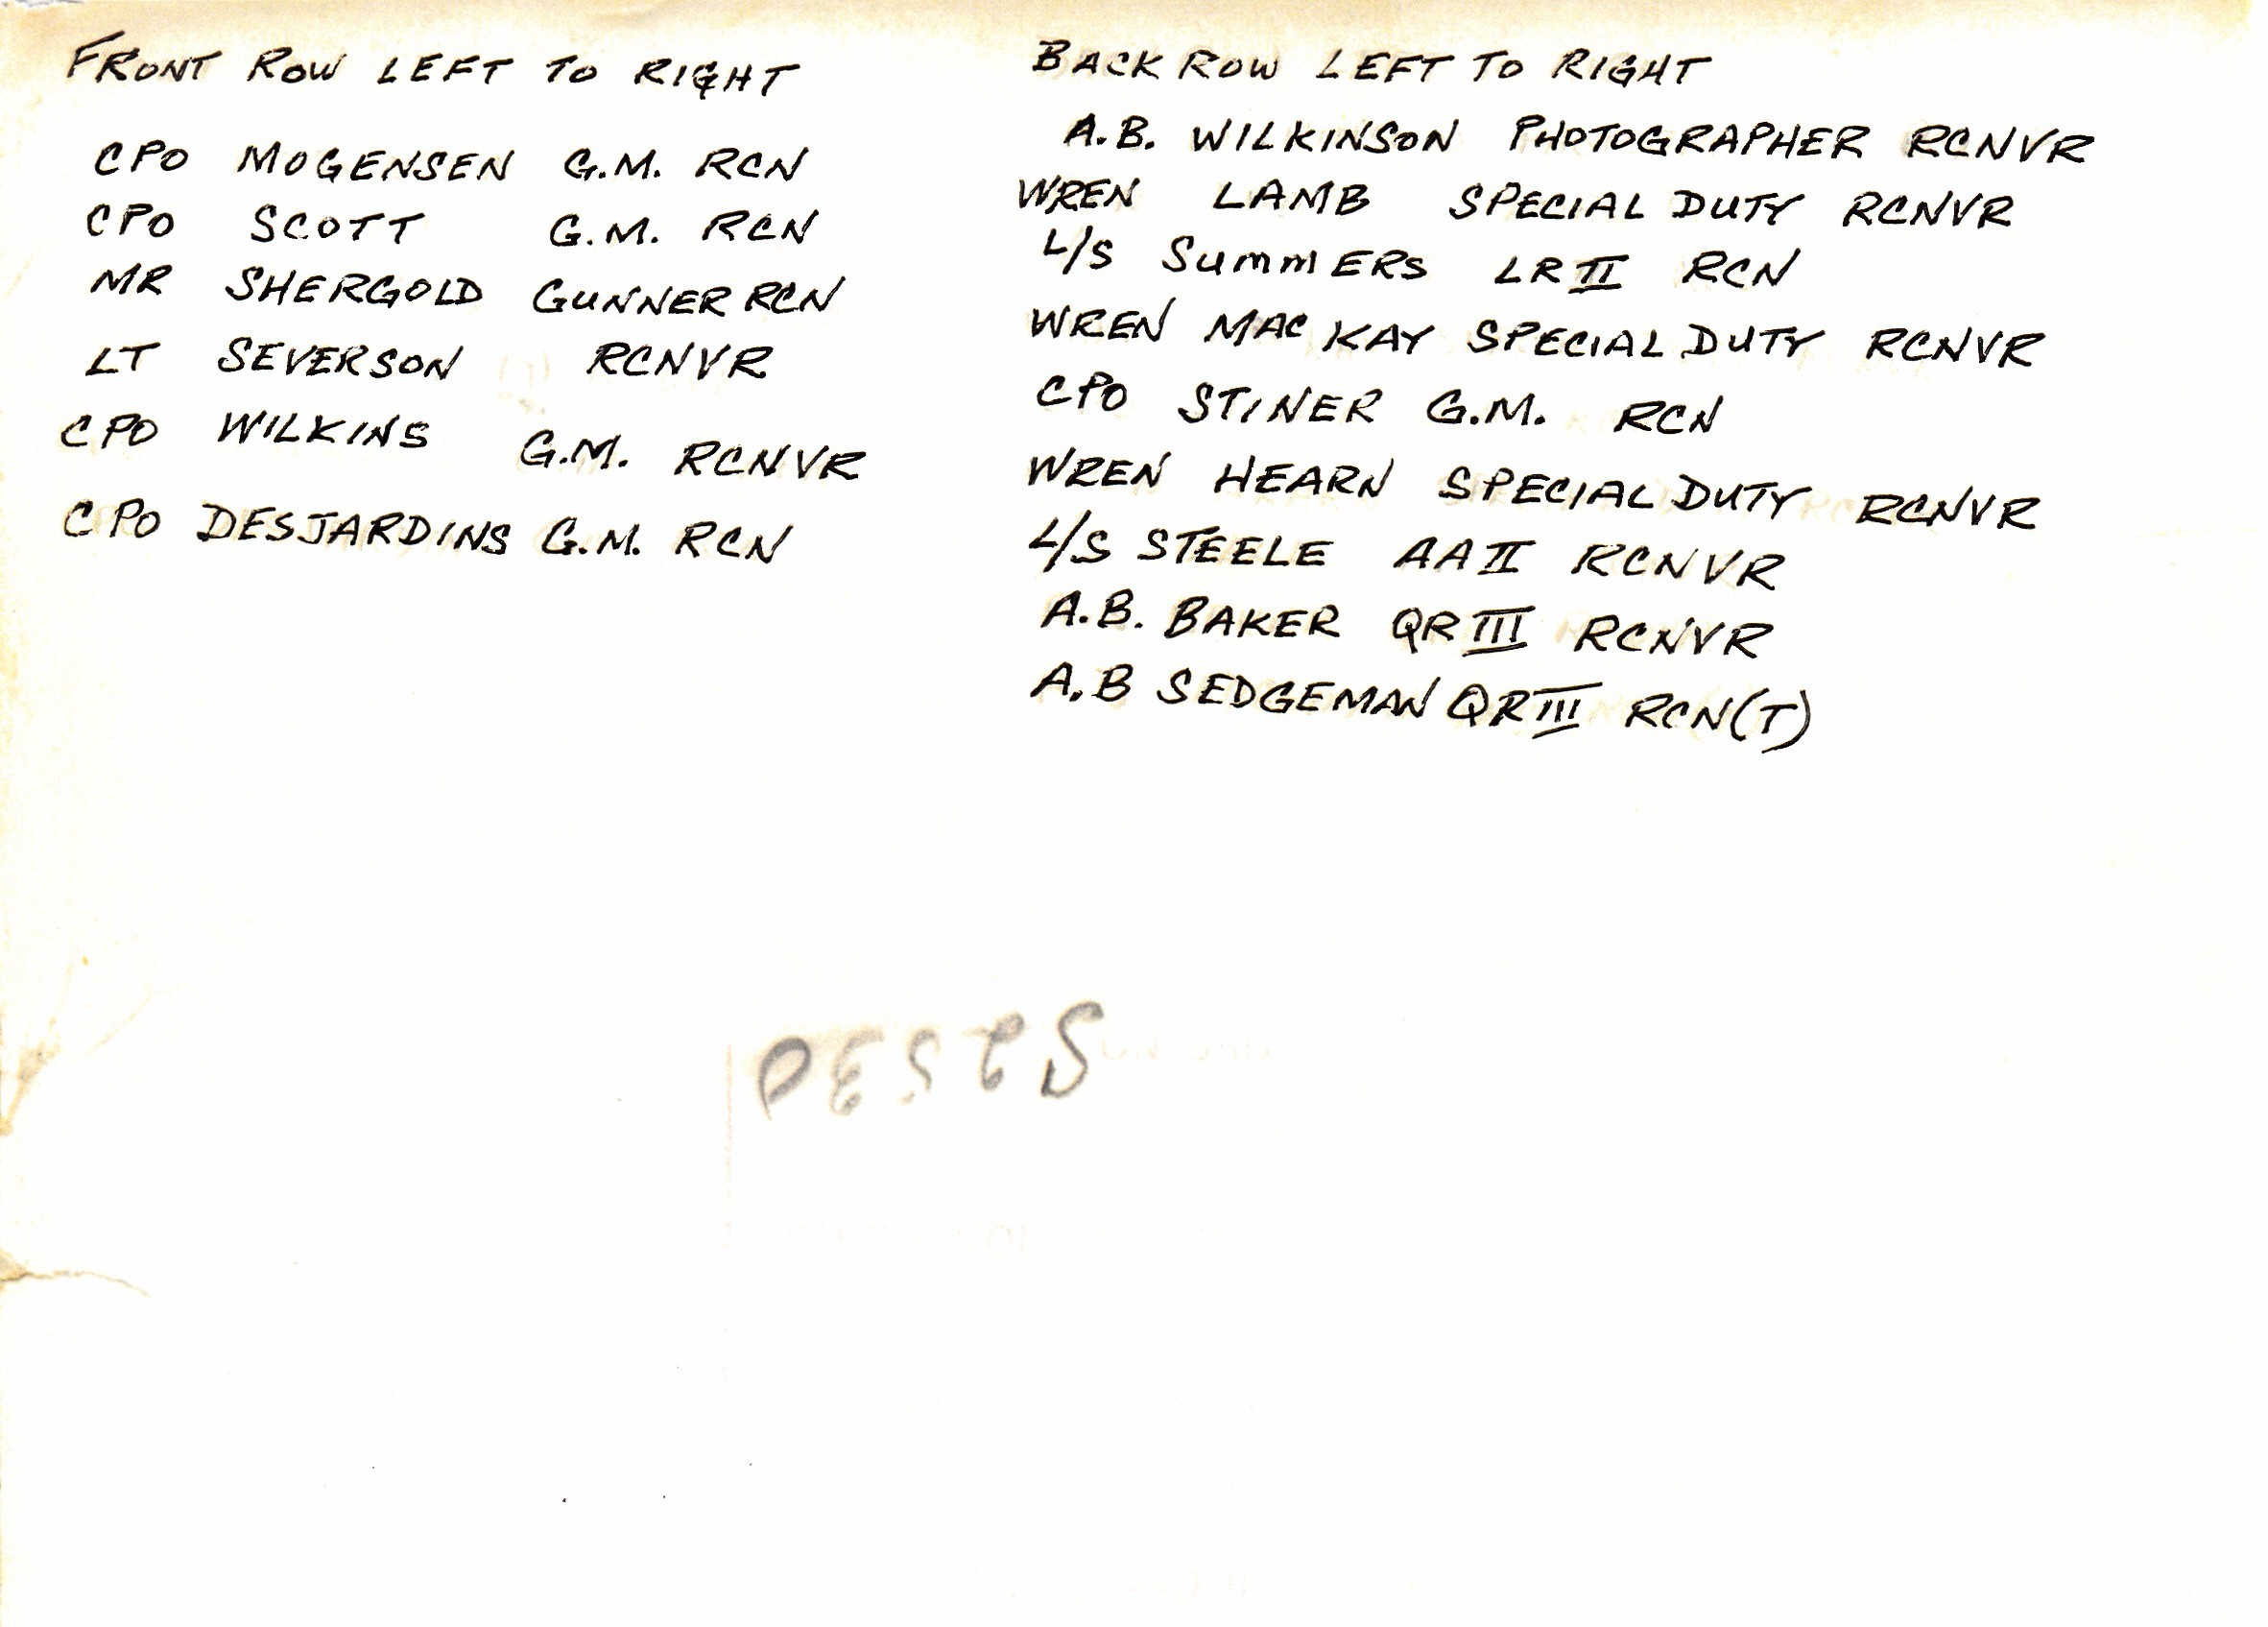 FRONT ROW LEFT TO RIGHT
CPO MOGENSEN G.M. RCN
CPO SCOTT G.M. RCN
MR SHERGOLD GUNNER RCN
LT SEVERSON RCNVR
CPO WILKINS G.M. RCNVR
CPO DESJARDINS G.M. RCN
BACK ROW LEFT TO RIGHT
A.B. WILKINSON PHOTOGRAPHER RCNVR
WREN LAMB SPECIAL DUTY RCNVR
L/S SUMMERS LR II RCN
WREN MAC KAY SPECIAL DUTY RCNVR
CPO STINER G.M. RCN
WREN HEARN SPECIAL DUTY RCNVR
L/S STEELE AA II RCNVR
A.B. BAKER QR III RCNVR
A.B SEDGEMAN QR III RCN(T)